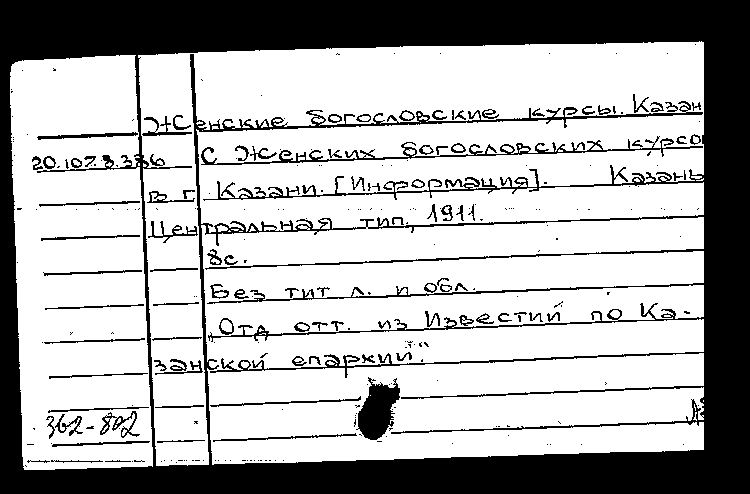 Женские богословские курсы. Казан
20.107.8.336 С Женских богословских курсо
в г. Казани. [Информация]. Казань
Центральная тип., 1911.
8с.
Без тит л. и обл.
„Отд отт. из Известий по Ка-
занской епархий."
362-802